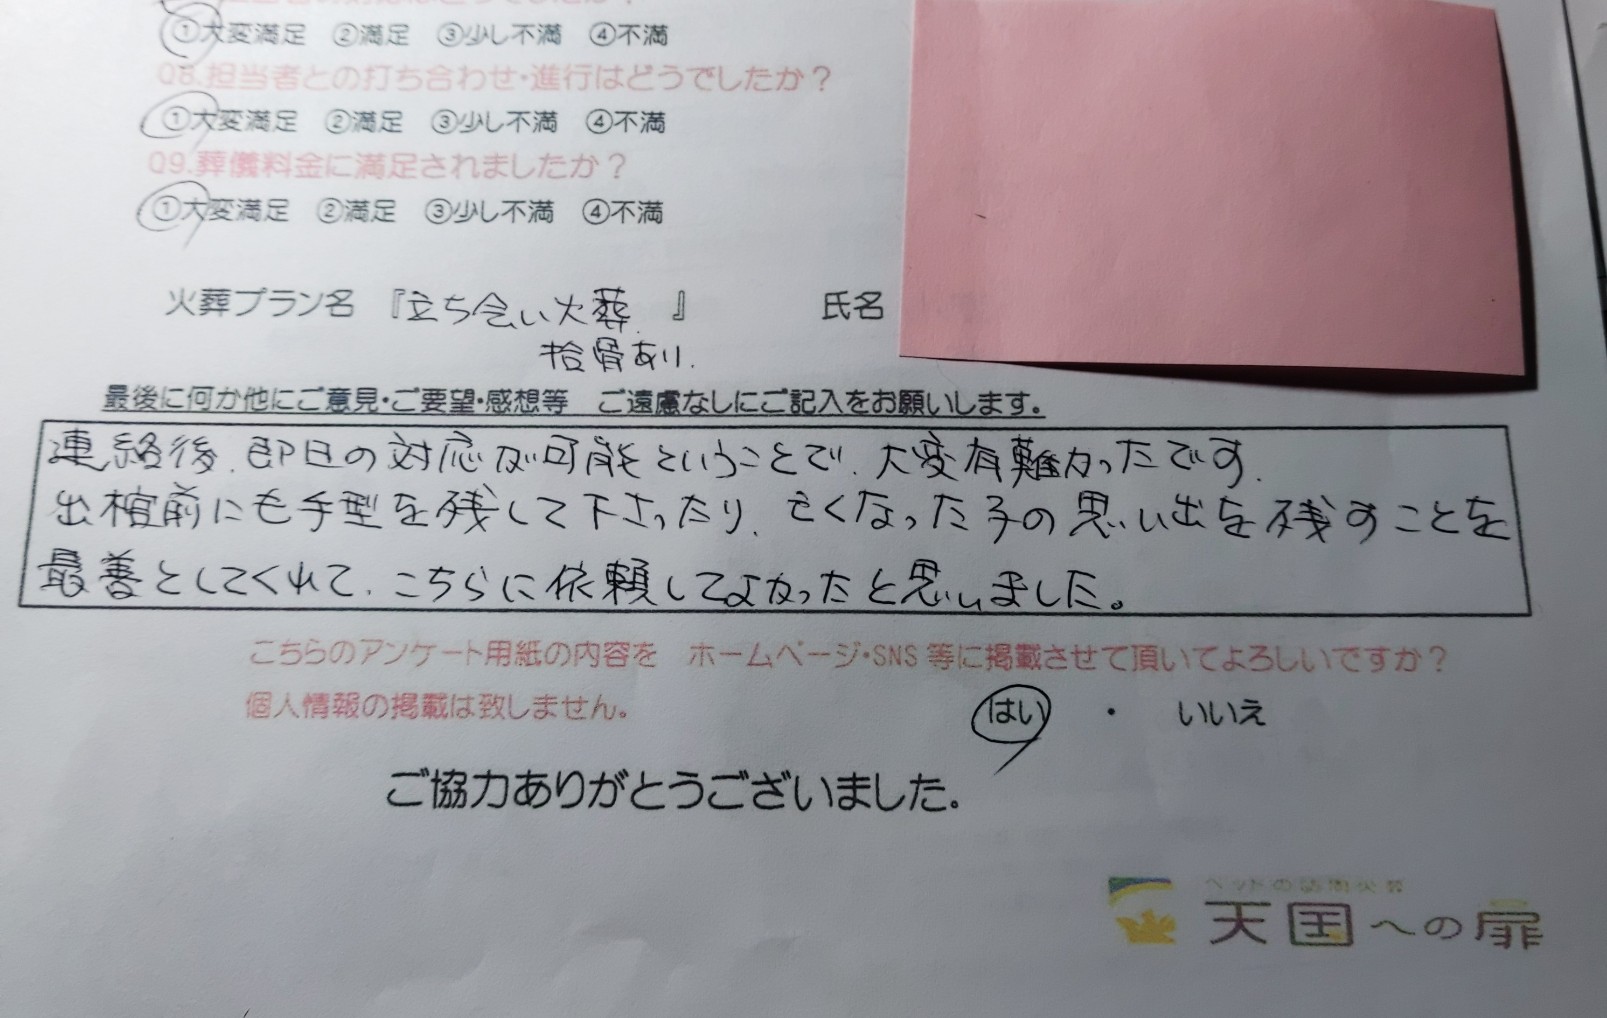 ①大変満足 ②満足 ③少し不満 ④不満
Q8.担当者との打ち合わせ・進行はどうでしたか？
①大変満足 ②満足 ③少し不満 ④不満
Q9.葬儀料金に満足されましたか？
①大変満足 ②満足 ③少し不満 ④不満
火葬プラン名 『立ち会い火葬 』 氏名
拾骨あり.
最後に何か他にご意見・ご要望・感想等 ご遠慮なしにご記入をお願いします。
連絡後、即日の対応が可能ということで、大変有難かったです.
出棺前にも手型を残して下さったり、亡くなった子の思い出を残すことを
最善としてくれて、こちらに依頼してよかったと思いました。
こちらのアンケート用紙の内容を ホームページ・SNS 等に掲載させて頂いてよろしいですか？
個人情報の掲載は致しません。
はい ・ いいえ
ご協力ありがとうございました。
ペットの訪問火葬
天国への扉